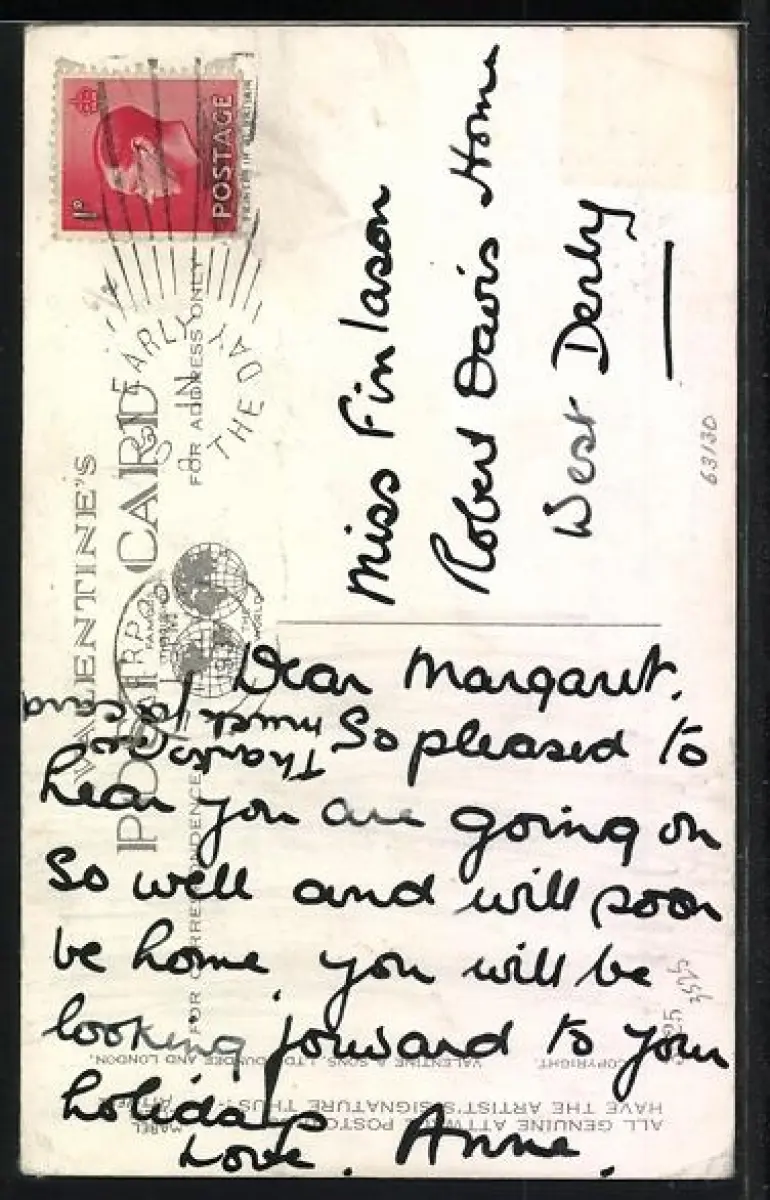 VALENTINE'S
POST CARD
FAMOUS THROUGHOUT THE WORLD
FOR CORRESPONDENCE
FOR ADDRESS ONLY
POSTAGE
1D
EARLY
IN
THE DAY
Miss Finlason
Robert Davis Home
West Derby
63130
Dear Margaret.
So pleased to
hear you are going on
so well and will soon
be home. you will be
looking forward to your
holiday
Love. Anne.
Thanks for
card
COPYRIGHT.
VALENTINE & SONS, LTD. DUNDEE AND LONDON.
ALL GENUINE ATTWELL POSTC
HAVE THE ARTIST'S SIGNATURE THUS:-
MABEL